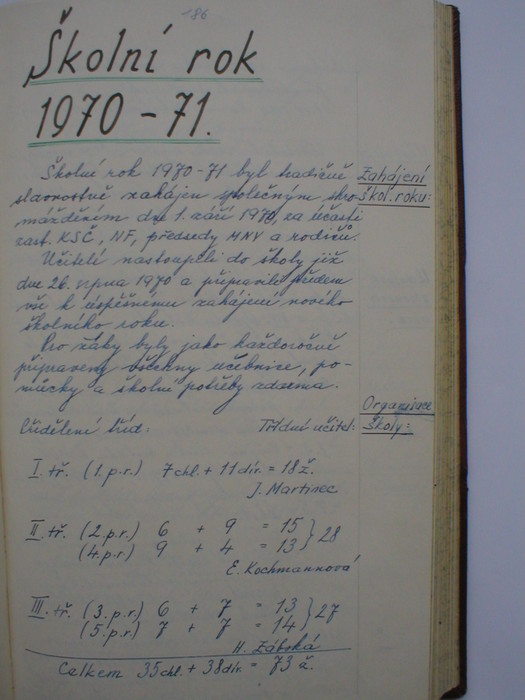 186
Školní rok
1970 - 71.
Školní rok 1970-71 byl tradičně
slavnostně zahájen společným shro-
mážděním dne 1. září 1970, za účasti
zást. KSČ, NF, předsedy MNV a rodičů.
Učitelé nastoupili do školy již
dne 26. srpna 1970 a připravili předem
vše k úspěšnému zahájení nového
školního roku.
Pro žáky byly jako každoročně
připraveny všechny učebnice, po-
můcky a školní potřeby zdarma.
Zahájení
škol. roku:
Organisace
školy:
Rozdělení tříd: Třídní učitel:
I. tř. (1.p.r.) 7 chl. + 11 dív. = 18 ž.
J. Martinec
II. tř. (2.p.r.) 6 + 9 = 15 } 28
(4.p.r) 9 + 4 = 13
E. Kochmannová
III. tř. (3.p.r.) 6 + 7 = 13 } 27
(5.p.r.) 7 + 7 = 14
H. Zábská
Celkem 35 chl. + 38 dív. = 73 ž.